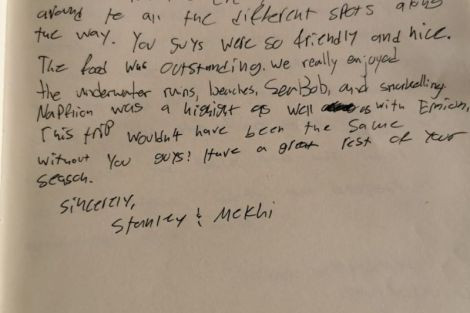 around to all the different spots along
the way. You guys were so friendly and nice.
The food was outstanding. We really enjoyed
the underwater runs, beaches, SeaBob, and snorkelling.
was a highlight as well as with
This trip wouldn't have been the same
without you guys! Have a great rest of your
season.
Sincerely,
Stanley & Mekhi